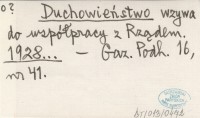 o? Duchowieństwo wzywa
do współpracy z Rządem.
1928... — Gaz. Podh. 16,
nr 41.